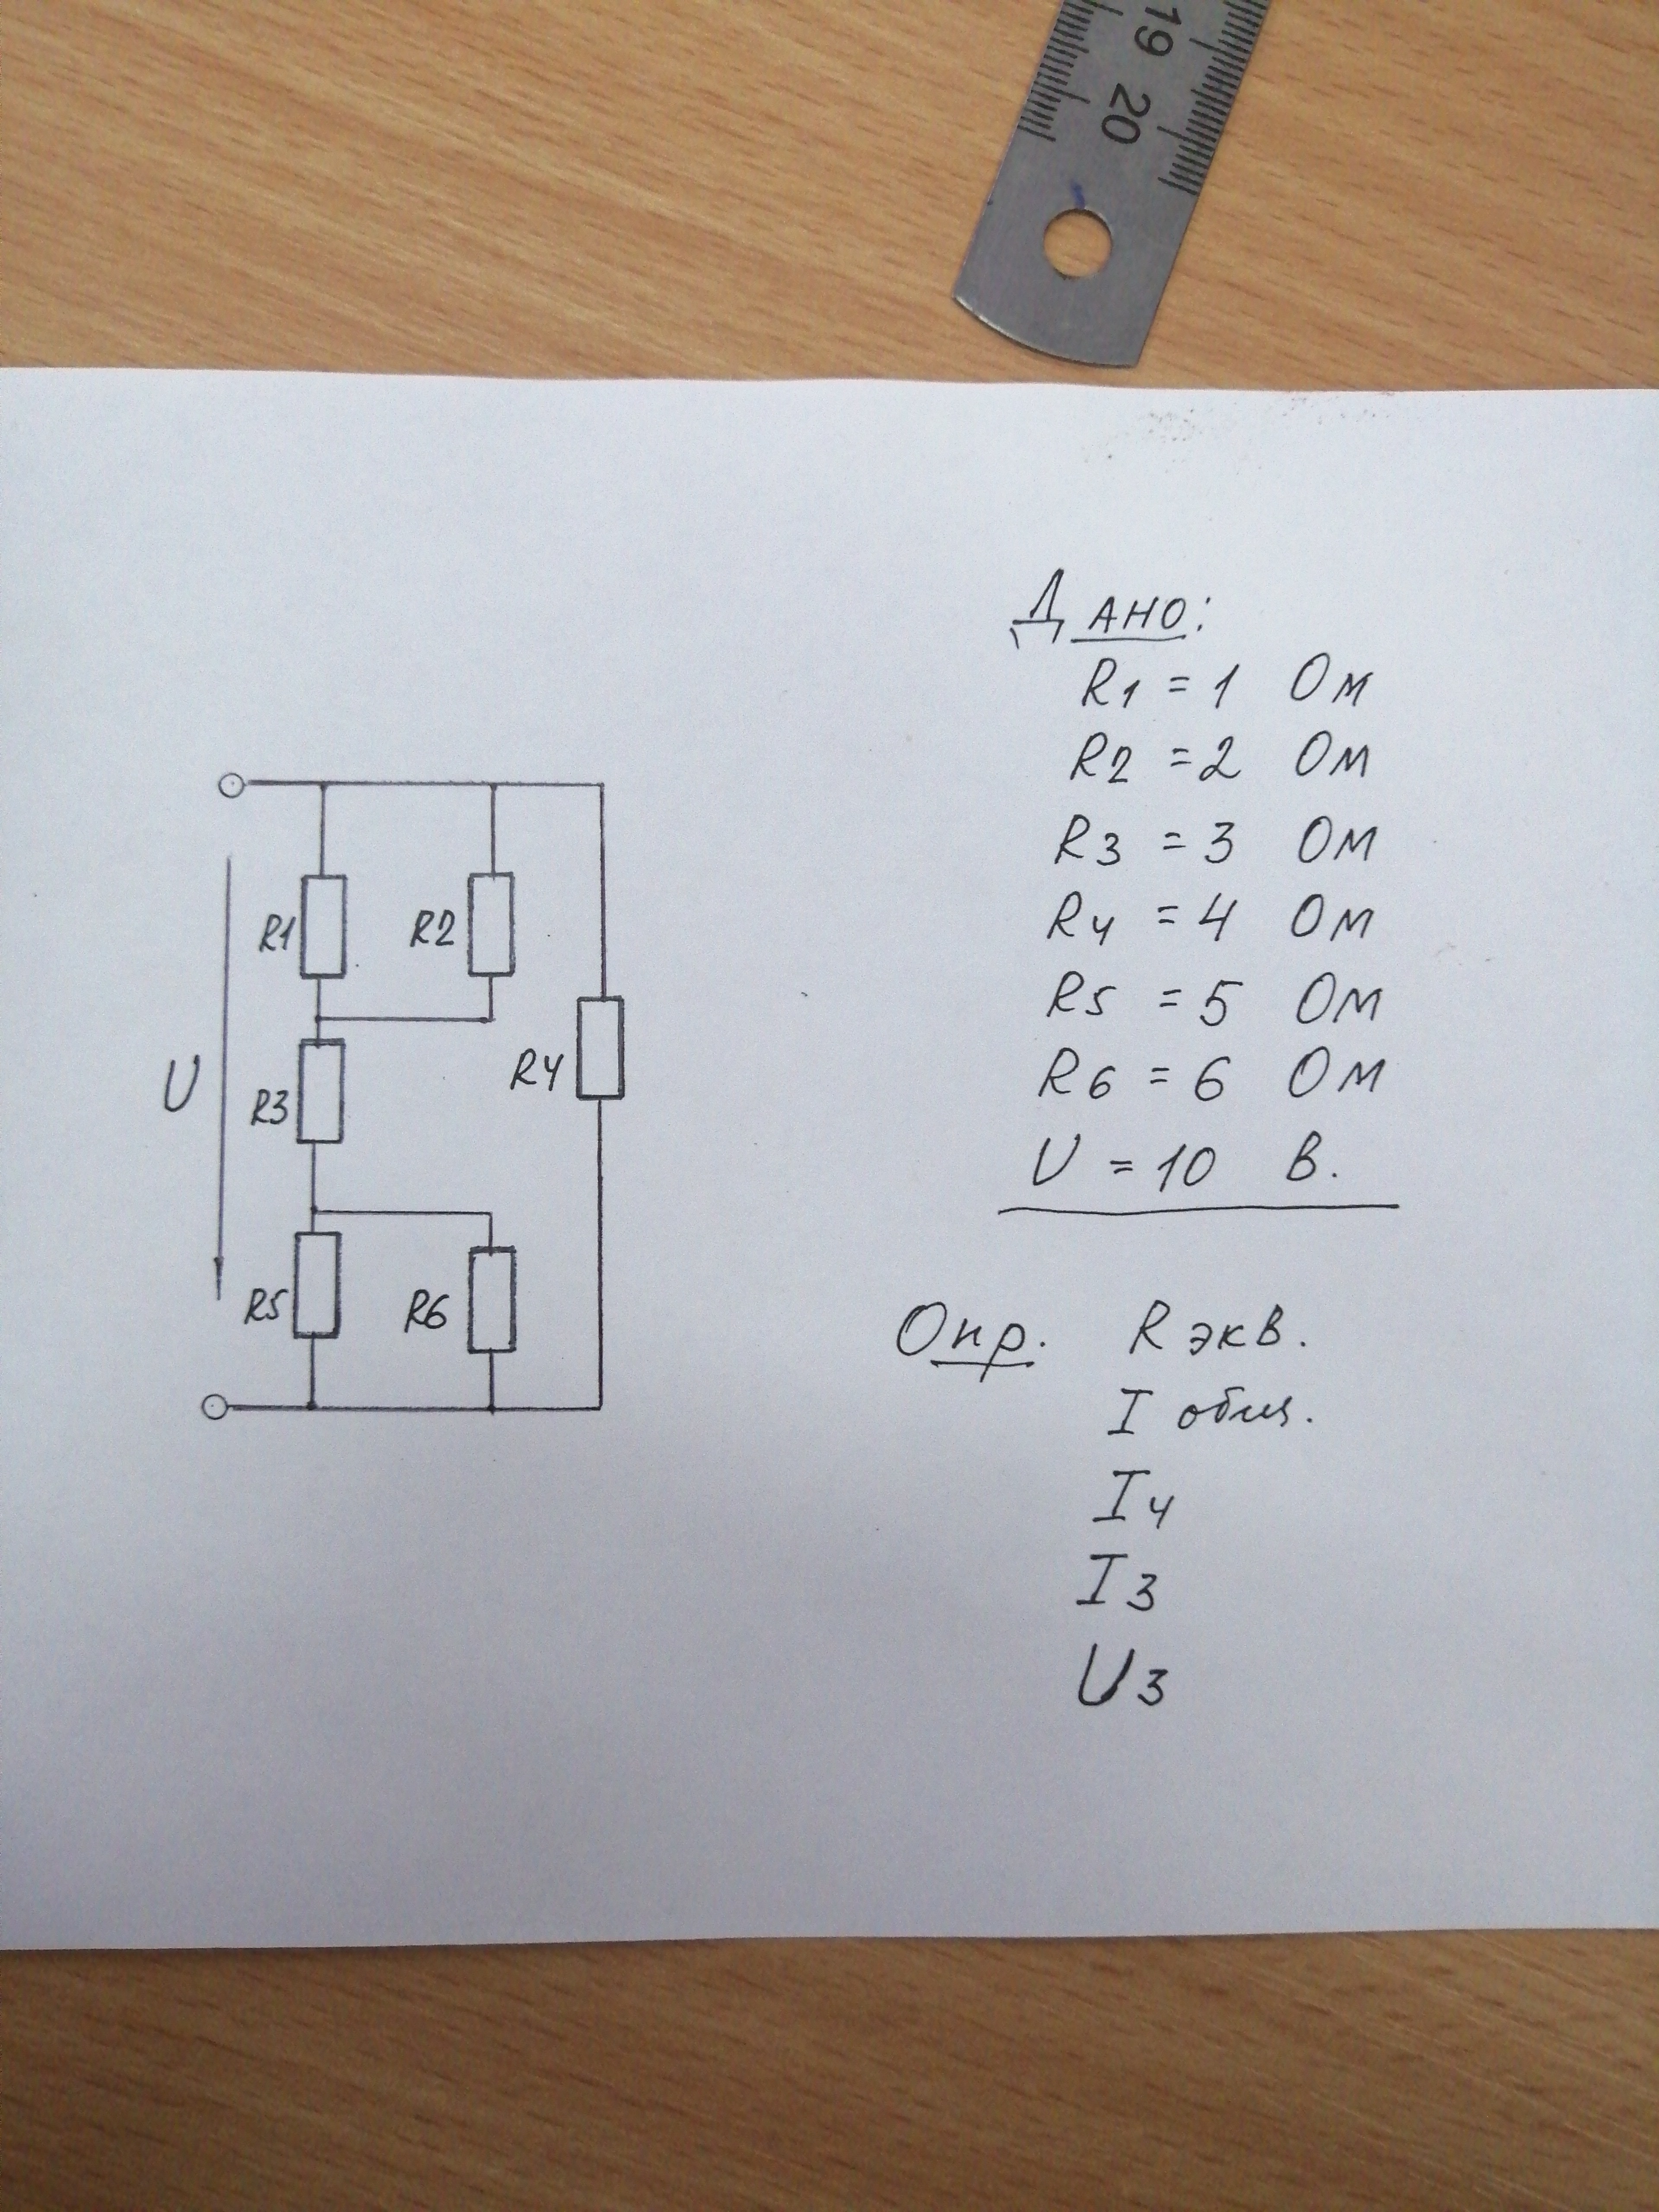 19
20
Дано:
R1 = 1 Ом
R2 = 2 Ом
R3 = 3 Ом
R4 = 4 Ом
R5 = 5 Ом
R6 = 6 Ом
U = 10 В.
Опр. R экв.
I общ.
I4
I3
U3
R1
R2
U
R3
R4
R5
R6